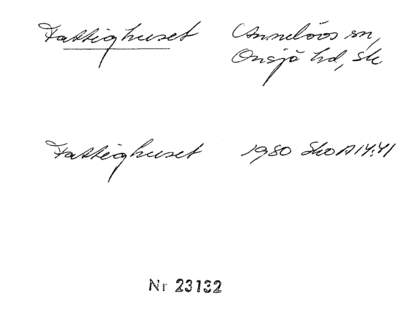 Fattighuset Annelövs sn,
Onsjö hd, Sk
Fattighuset 1980 SkoA14:41
Nr 23132